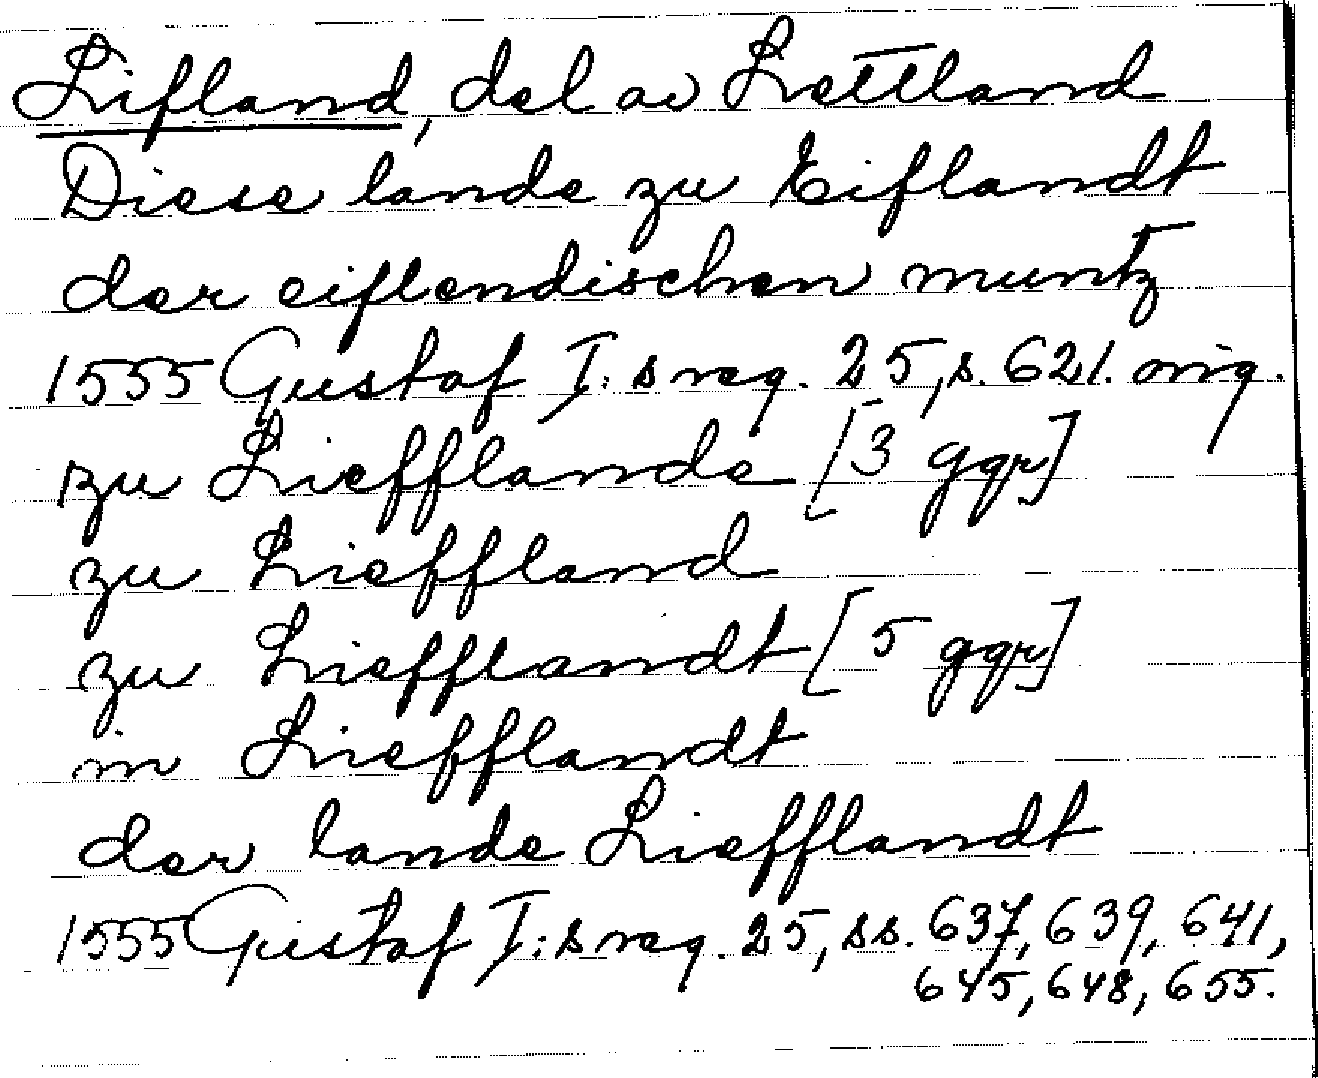 Lifland, del av Lettland
Diese lande zu Eiflandt
der eiflendischen muntz
1555 Gustaf I:s reg. 25, s. 621. orig.
zu Liefflande [3 ggr]
zu Lieffland
zu Liefflandt [5 ggr]
in Liefflandt
der lande Liefflandt
1555 Gustaf I:s reg. 25, ss. 637, 639, 641,
645, 648, 655.